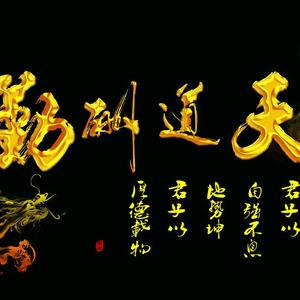 天道酬勤
君子以
自强不息
地勢坤
君子以
厚德載物